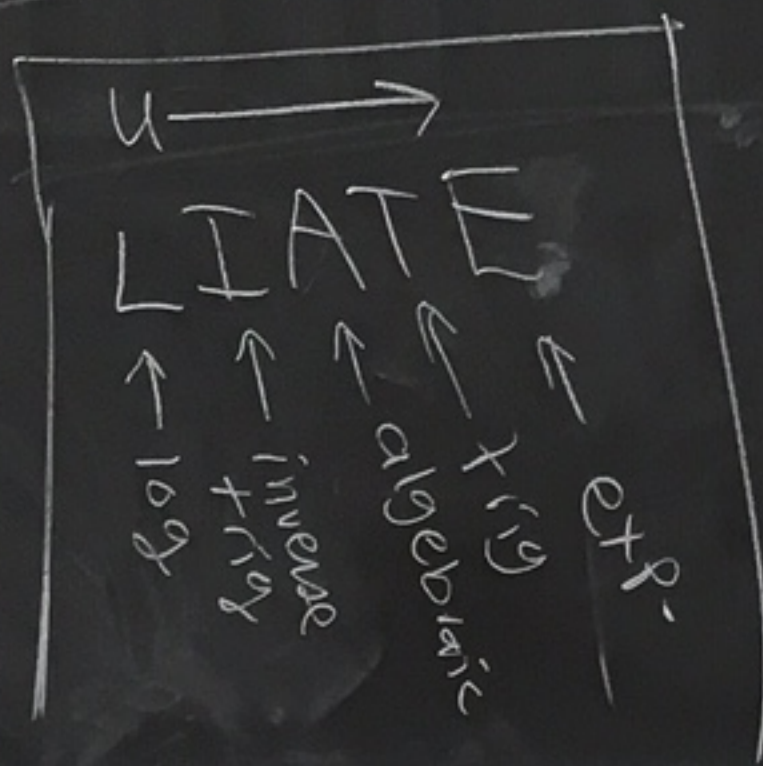 u
LIATE
log
inverse
trig
algebraic
trig
exp.